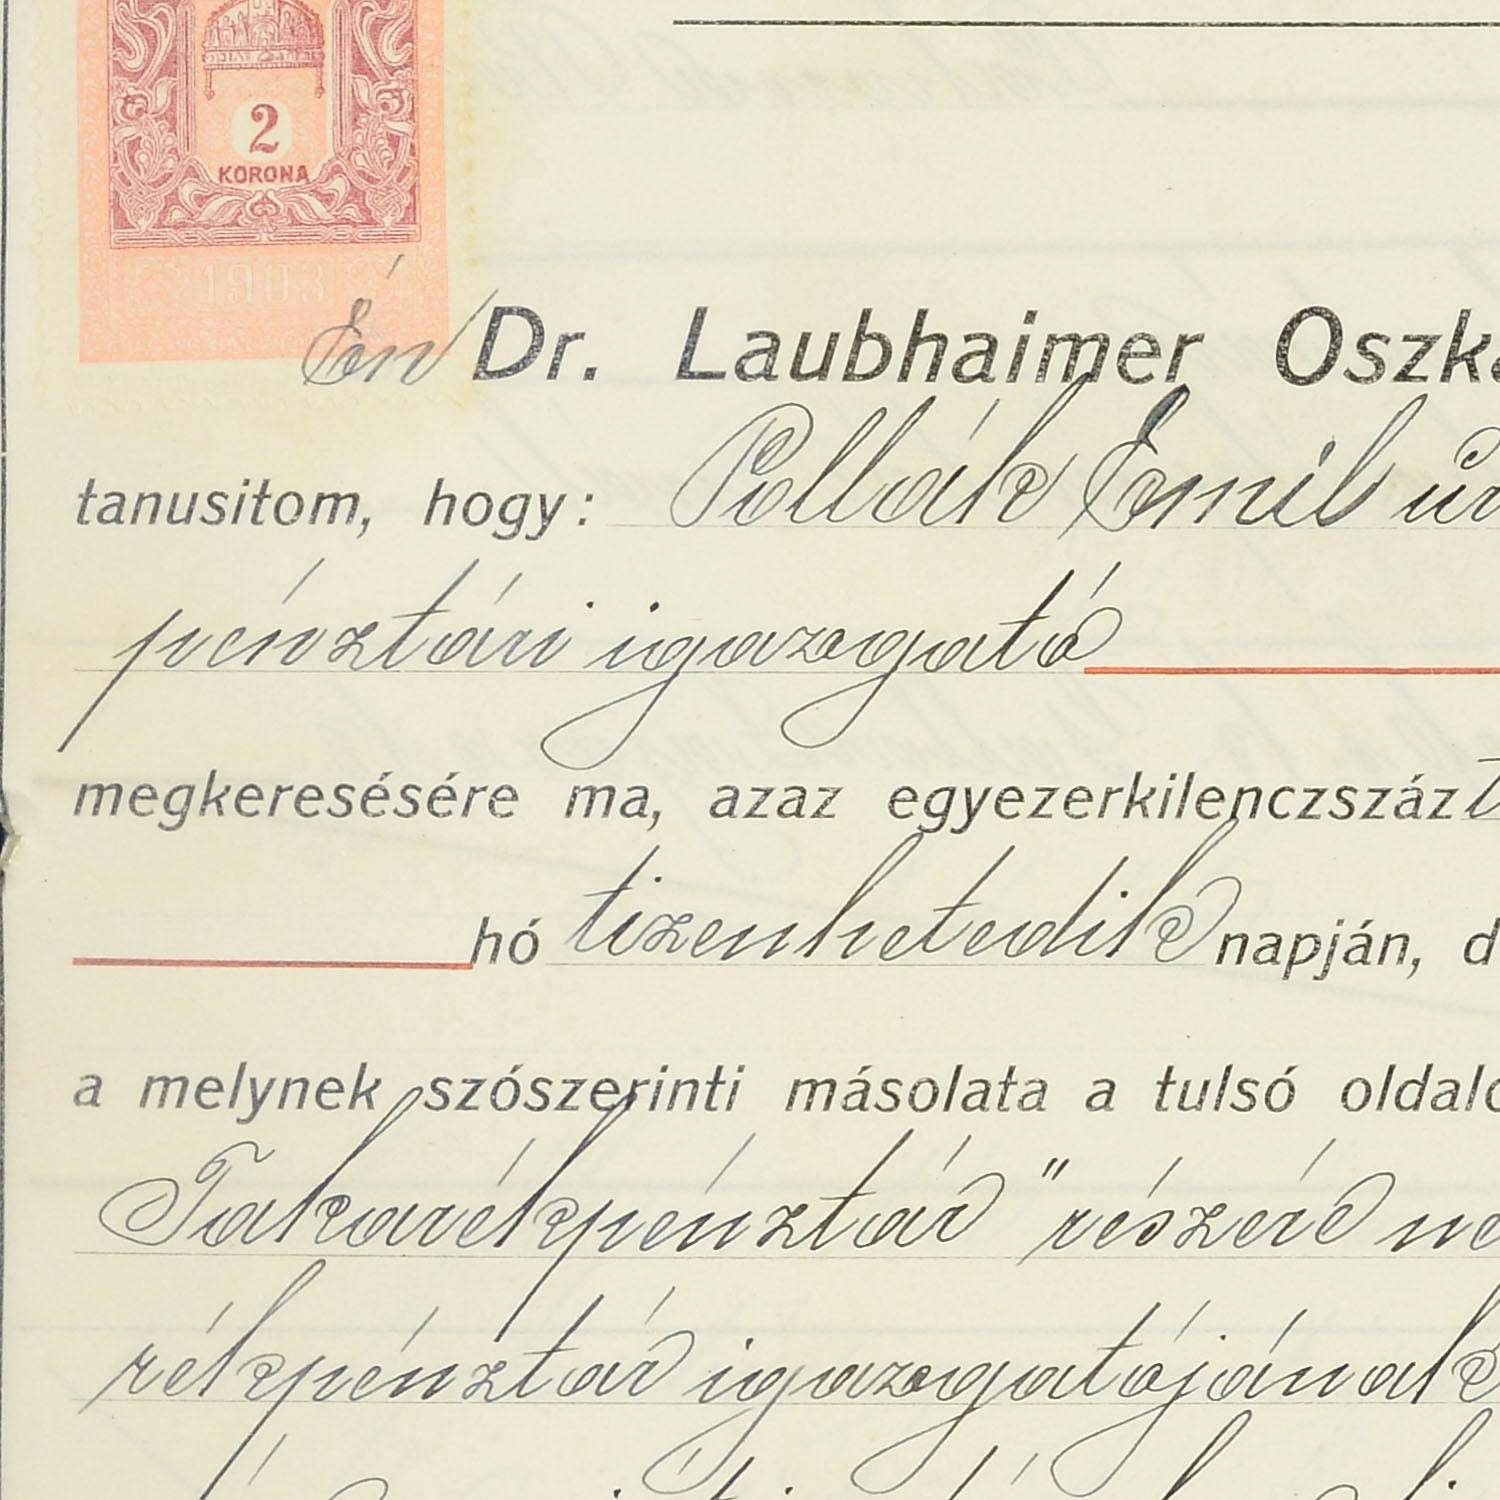 2
KORONA
1903
Én Dr. Laubhaimer Oszká
tanusitom, hogy: Pollák Emil úr
pénztári igazgató
megkeresésére ma, azaz egyezerkilenczszáz
hó tizenhetedik napján, d
a melynek szószerinti másolata a tulsó oldalo
Takarékpénztár" részére ne
rékpénztár igazgatójának